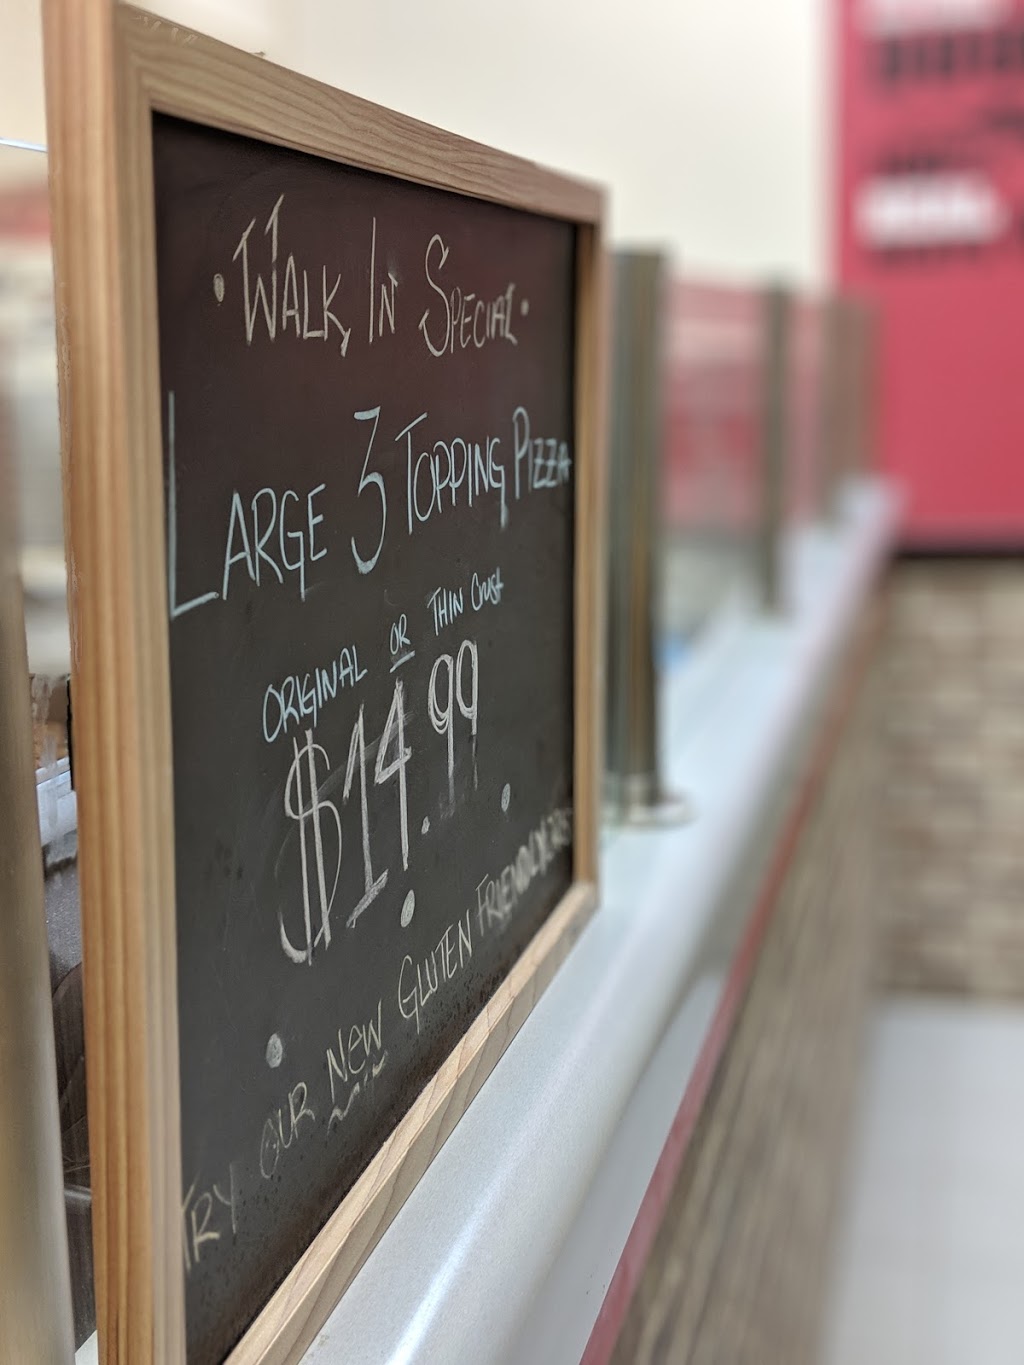 · WALK IN SPECIAL ·
LARGE 3 TOPPING PIZZA
ORIGINAL OR THIN Crust
$14.99
TRY OUR NEW GLUTEN FRIENDLY